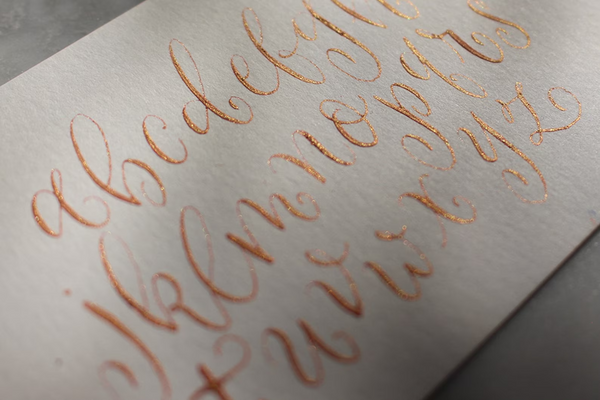 a b c d e f g
j k l m n o p q r s
t u v w x y z